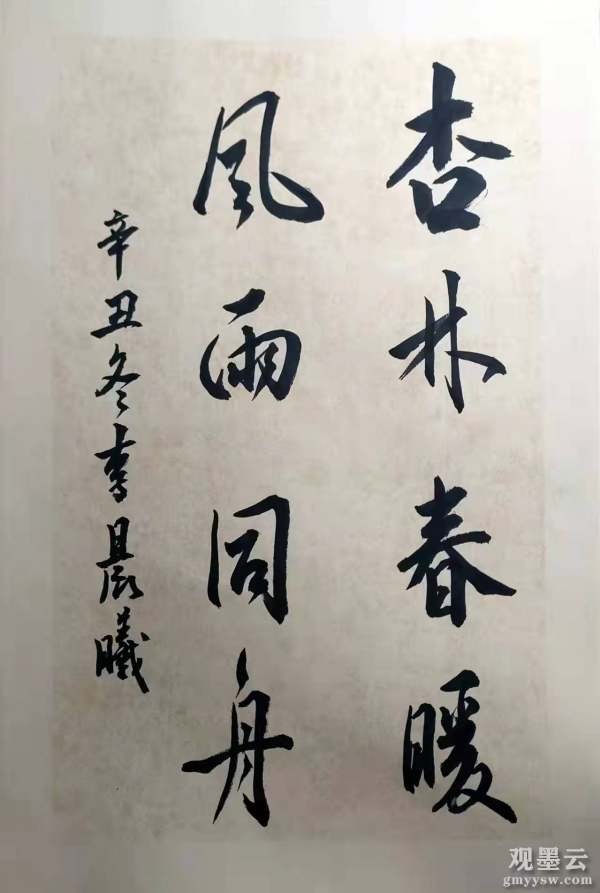 杏林春暖
風雨同舟
辛丑冬李晨曦
观墨云
gmyysw.com